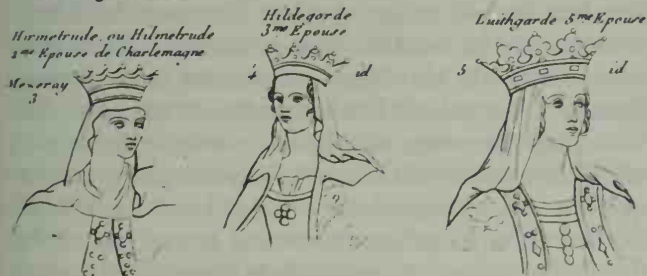 Hirmetrude, ou Hilmetrude
2me Epouse de Charlemagne
Mezeray
3
Hildegorde
3me Epouse
4 id
Luithgarde 5me Epouse
5 id